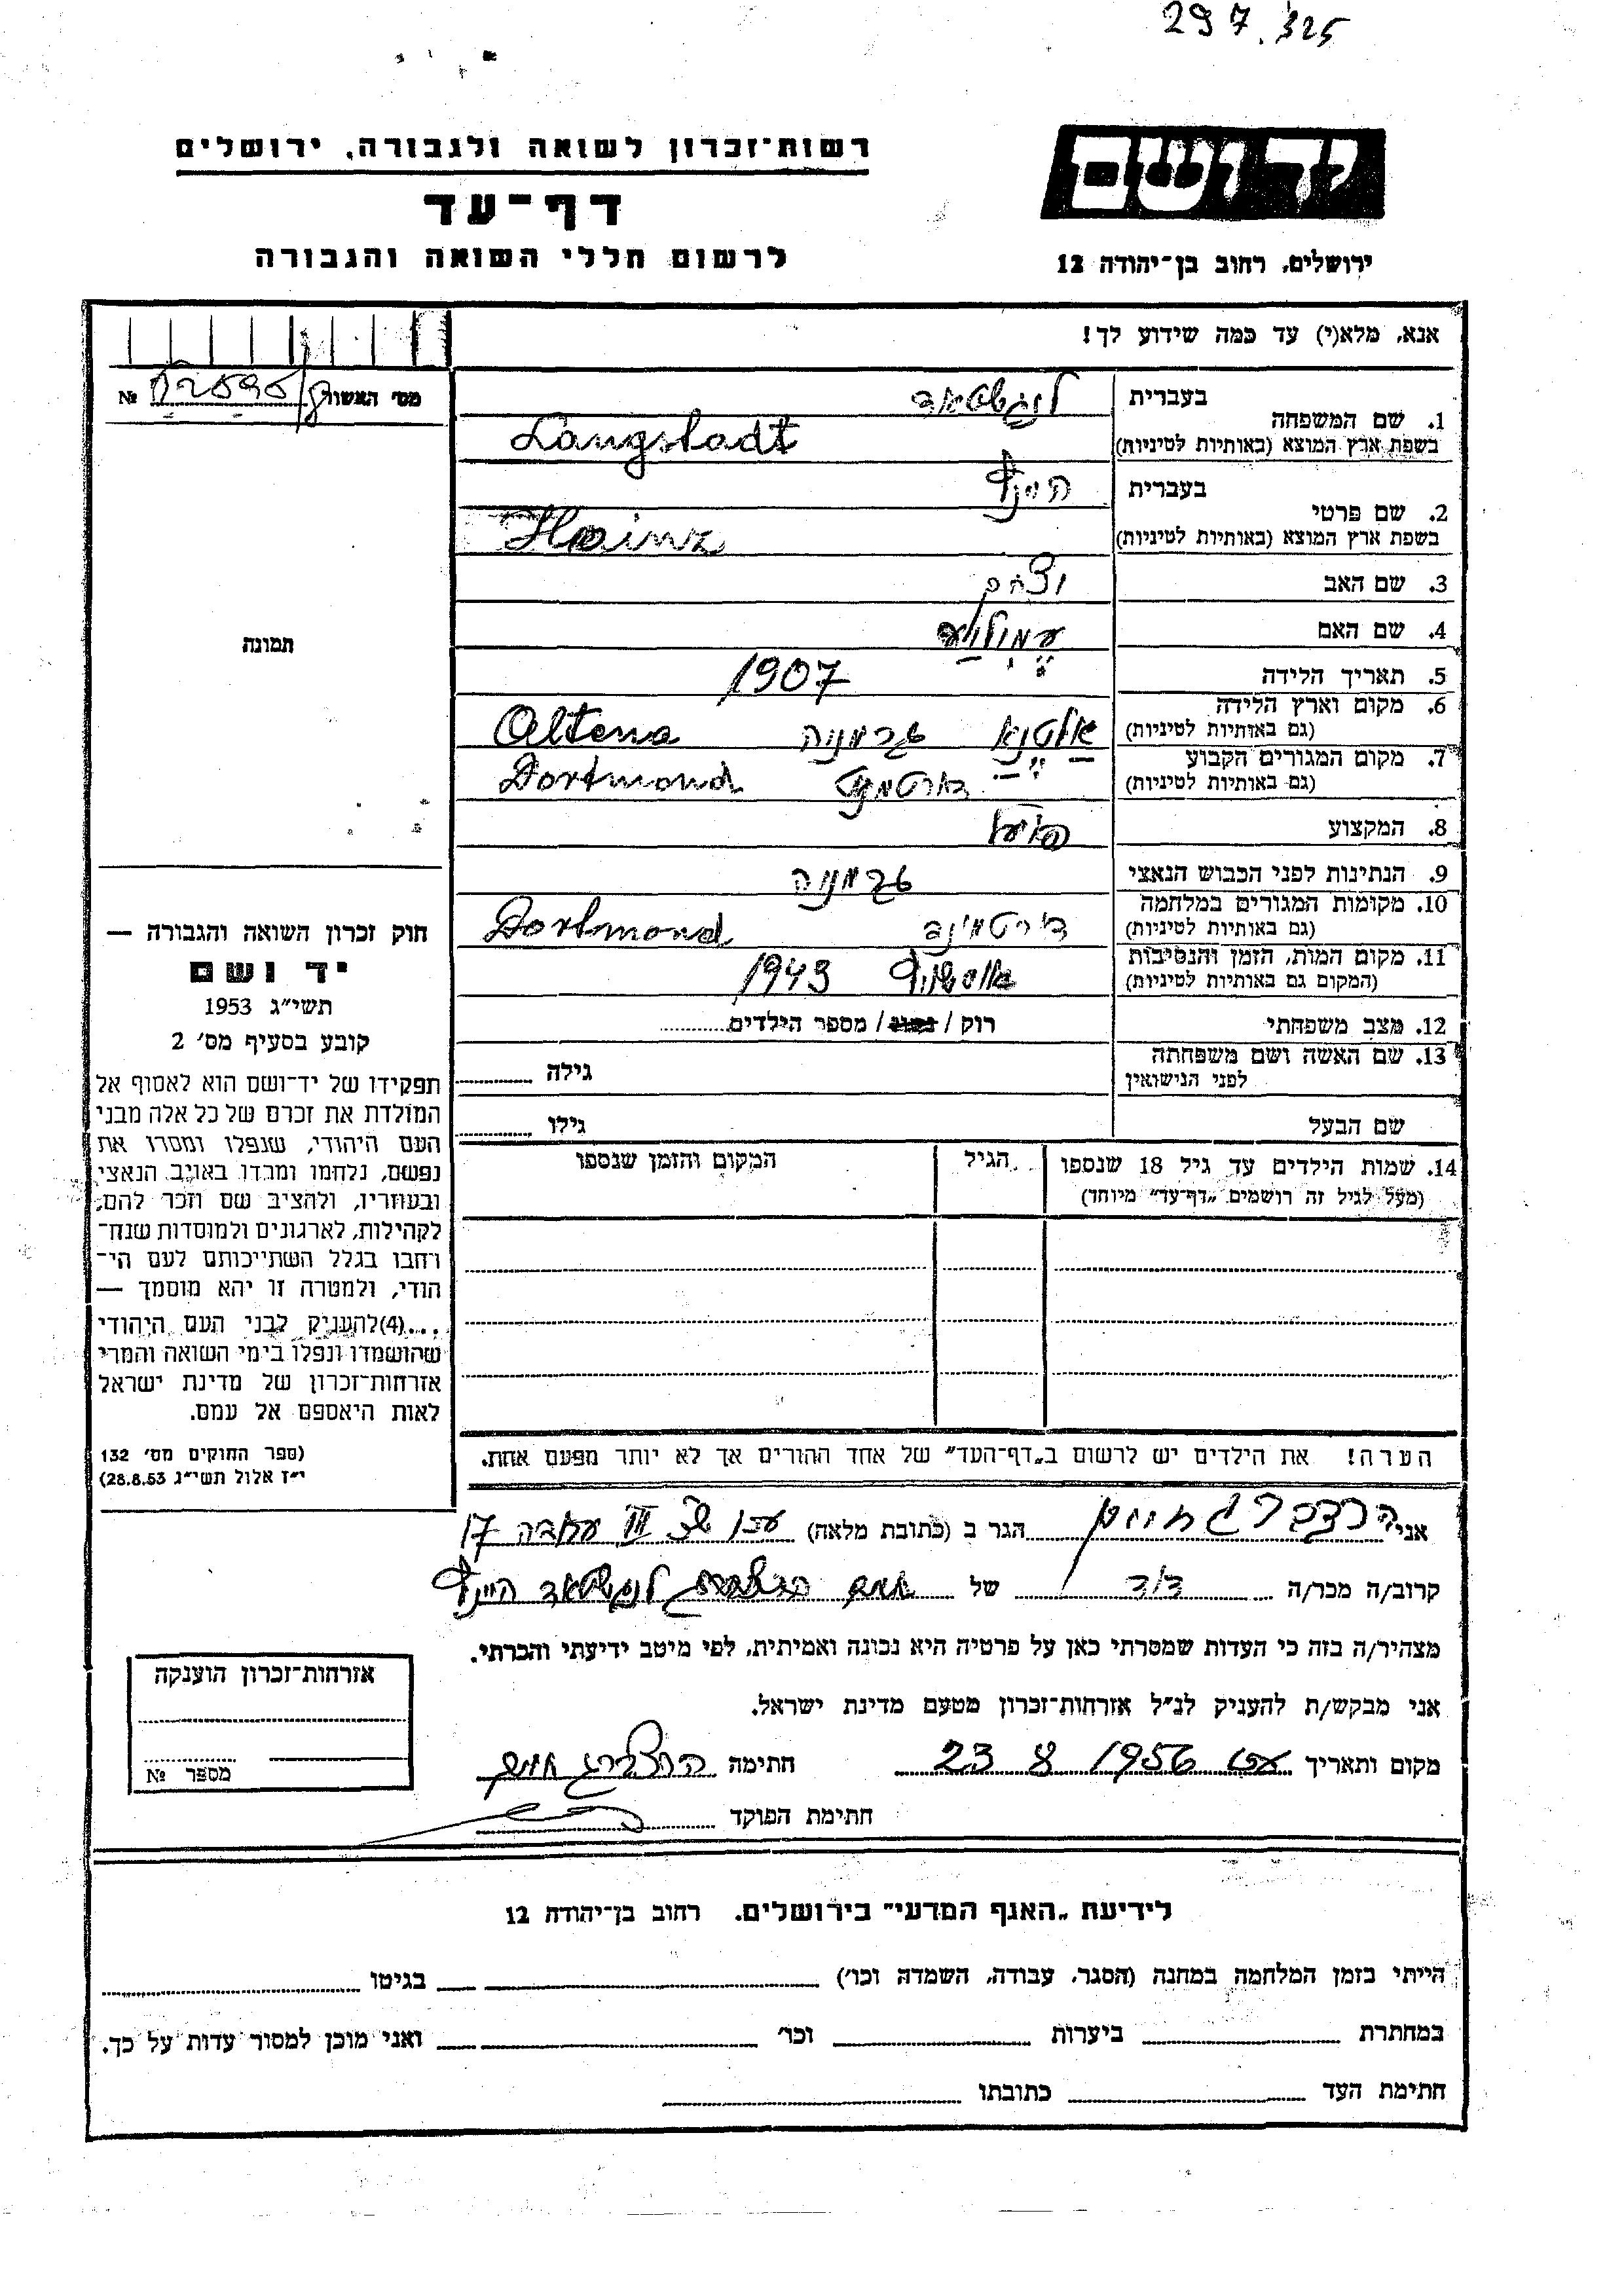 297.325
רשות־זכרון לשואה ולגבורה, ירושלים
דף־עד
לרשום חללי השואה והגבורה
יד ושם
ירושלים, רחוב בן־יהודה 12
אנא, מלא(י) עד כמה שידוע לך!
מס' האשור №
1. שם המשפחה
בעברית
לנגשטאדט
בשפת ארץ המוצא (באותיות לטיניות)
Langstadt
2. שם פרטי
בעברית
היינץ
בשפת ארץ המוצא (באותיות לטיניות)
Heinz
3. שם האב יצחק
4. שם האם
5. תאריך הלידה 1907
6. מקום וארץ הלידה
(גם באותיות לטיניות)
אלטנא גרמניה Altena
7. מקום המגורים הקבוע
(גם באותיות לטיניות)
דורטמונד Dortmond
8. המקצוע פועל
9. הנתינות לפני הכבוש הנאצי גרמניה
10. מקומות המגורים במלחמה
(גם באותיות לטיניות)
דורטמונד Dortmond
11. מקום המות, הזמן והנסיבות
(המקום גם באותיות לטיניות)
אושוויץ 1943
12. מצב משפחתי רוק / נשוי / מספר הילדים
13. שם האשה ושם משפחתה
לפני הנישואין
גילה
שם הבעל גילו
14. שמות הילדים עד גיל 18 שנספו
(מעל לגיל זה רושמים "דף־עד" מיוחד)
הגיל
המקום והזמן שנספו
תמונה
חוק זכרון השואה והגבורה —
יד ושם
תשי"ג 1953
קובע בסעיף מס' 2
תפקידו של יד־ושם הוא לאסוף אל
המולדת את זכרם של כל אלה מבני
העם היהודי, שנפלו ומסרו את
נפשם, נלחמו ומרדו באויב הנאצי
ובעוזריו, ולהציב שם וזכר להם,
לקהילות, לארגונים ולמוסדות שנח־
רבו בגלל השתייכותם לעם הי־
הודי, ולמטרה זו יהא מוסמך —
...(4) להעניק לבני העם היהודי
שהושמדו ונפלו בימי השואה והמרי
אזרחות־זכרון של מדינת ישראל
לאות היאספם אל עמם.
(ספר החוקים מס' 132
י"ז אלול תשי"ג 28.8.53)
הערה! את הילדים יש לרשום ב"דף־העד" של אחד ההורים אך לא יותר מפעם אחת.
אני הרצברג הגר ב (כתובת מלאה) עכו III 17
קרוב/ה מכר/ה דוד של לנגשטאדט היינץ
מצהיר/ה בזה כי העדות שמסרתי כאן על פרטיה היא נכונה ואמיתית, לפי מיטב ידיעתי והכרתי.
אני מבקש/ת להעניק לנ"ל אזרחות־זכרון מטעם מדינת ישראל.
מקום ותאריך עכו 23 8 1956 חתימה הרצברג
חתימת הפוקד
אזרחות־זכרון הוענקה
מספר №
לידיעת "האגף המדעי" בירושלים, רחוב בן־יהודה 12
הייתי בזמן המלחמה במחנה (הסגר, עבודה, השמדה וכו') בגיטו
במחתרת ביערות וכו' ואני מוכן למסור עדות על כך.
חתימת העד כתובתו